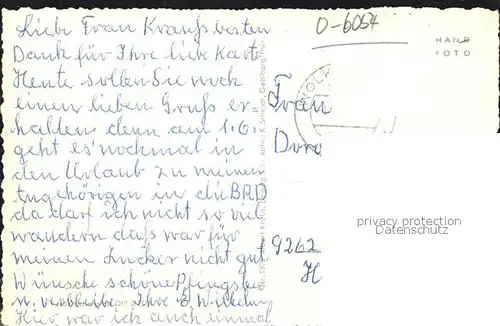 Liebe Frau Krauß besten
Dank für Ihre liebe Kart
Heute sollen Sie noch
einen lieben Gruß er
halten denn am 1.6.
geht es nochmal in
den Urlaub zu meinen
Angehörigen in die BRD
da darf ich nicht so viel
wandern daß war für
meinen Zucker nicht gut
Wünsche schöne Pfingsten
u. verbleibe Ihre E. Wilhelm
Hier war ich auch einmal
O-6054
HAND
FOTO
WOLA
Frau
Doro
privacy protection
Datenschutz
9262
H